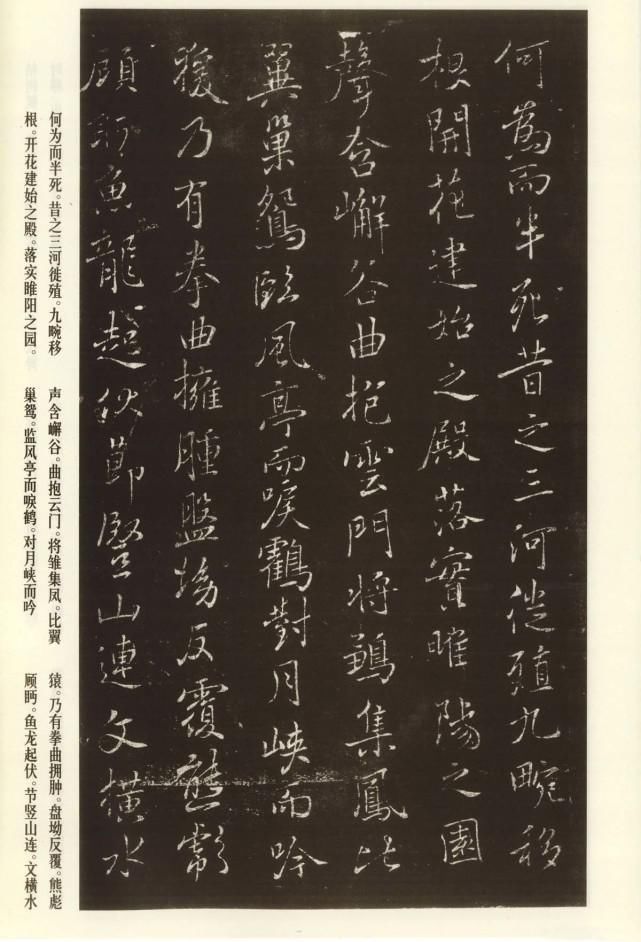 何為而半死昔之三河徙殖九畹移
根開花建始之殿落實睢陽之園
聲含嶰谷曲抱雲門將鶵集鳳比
翼巢鴛臨風亭而唳鶴對月峽而吟
猨乃有拳曲擁腫盤坳反覆熊彪
顧眄魚龍起伏節豎山連文橫水
何为而半死。昔之三河徙殖。九畹移
根。开花建始之殿。落实睢阳之园。
声含嶰谷。曲抱云门。将雏集凤。比翼
巢鸳。监风亭而唳鹤。对月峡而吟
猿。乃有拳曲拥肿。盘坳反覆。熊彪
顾眄。鱼龙起伏。节竖山连。文横水